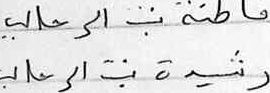 فاطنة بنت الرحالي
رشيدة بنت الرحالي